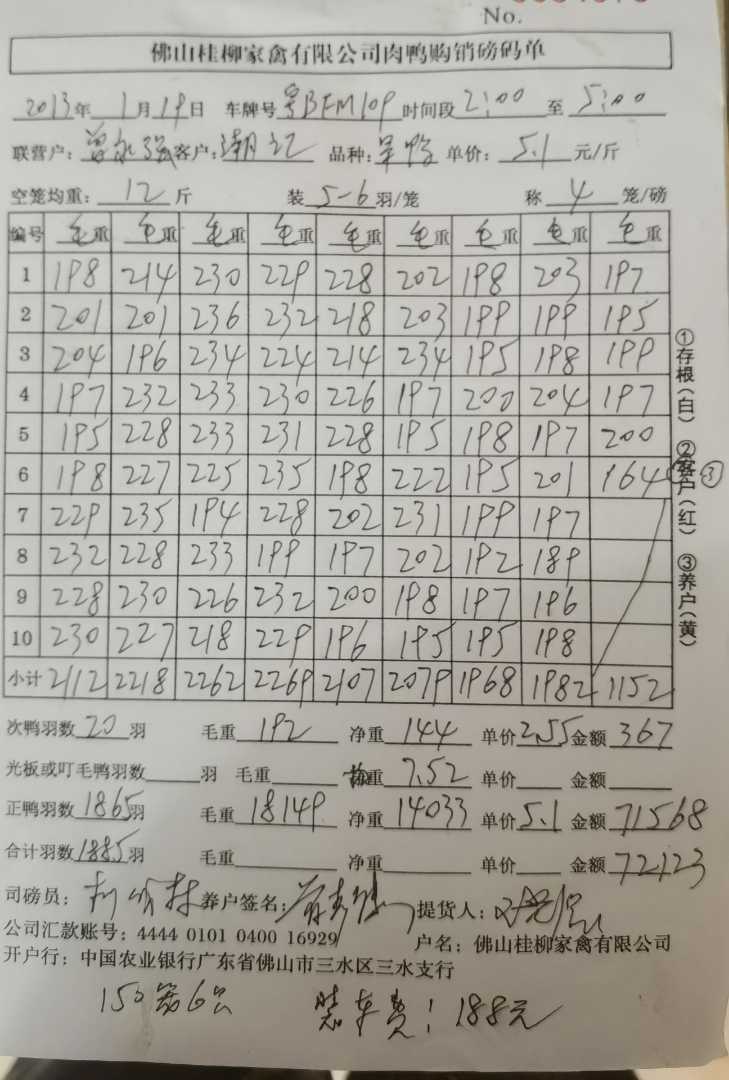 No.
佛山桂柳家禽有限公司肉鸭购销磅码单
2013年 1月19日 车牌号 粤BFM109 时间段 2:00 至 5:00
联营户: 客户: 潮记 品种: 单价: 5.1 元/斤
空笼均重: 12 斤 装 5-6 羽/笼 称 4 笼/磅
编号 毛重 毛重 毛重 毛重 毛重 毛重 毛重 毛重 毛重
1 198 214 230 229 228 202 198 203 197
2 201 201 236 232 218 203 199 199 195
3 204 196 234 224 214 234 195 198 199
4 197 232 233 230 226 197 200 204 197
5 195 228 233 231 228 195 198 197 200
6 198 227 225 235 198 222 195 201 164 ③
7 229 235 194 228 202 231 199 197
8 232 228 233 199 197 202 192 189
9 228 230 226 232 200 198 197 196
10 230 227 218 229 196 195 195 198
小计 2112 2218 2262 2269 2107 2079 1968 1982 1152
①存根(白) ②客户(红) ③养户(黄)
次鸭羽数 20 羽 毛重 192 净重 144 单价 2.55 金额 367
光板或叮毛鸭羽数 羽 毛重 重 7.52 单价 金额
正鸭羽数 1865 羽 毛重 18149 净重 14033 单价 5.1 金额 71568
合计羽数 1885 羽 毛重 净重 单价 金额 72123
司磅员: 养户签名: 提货人:
公司汇款账号: 4444 0101 0400 16929 户名: 佛山桂柳家禽有限公司
开户行: 中国农业银行广东省佛山市三水区三水支行
150 6 装车费: 188元